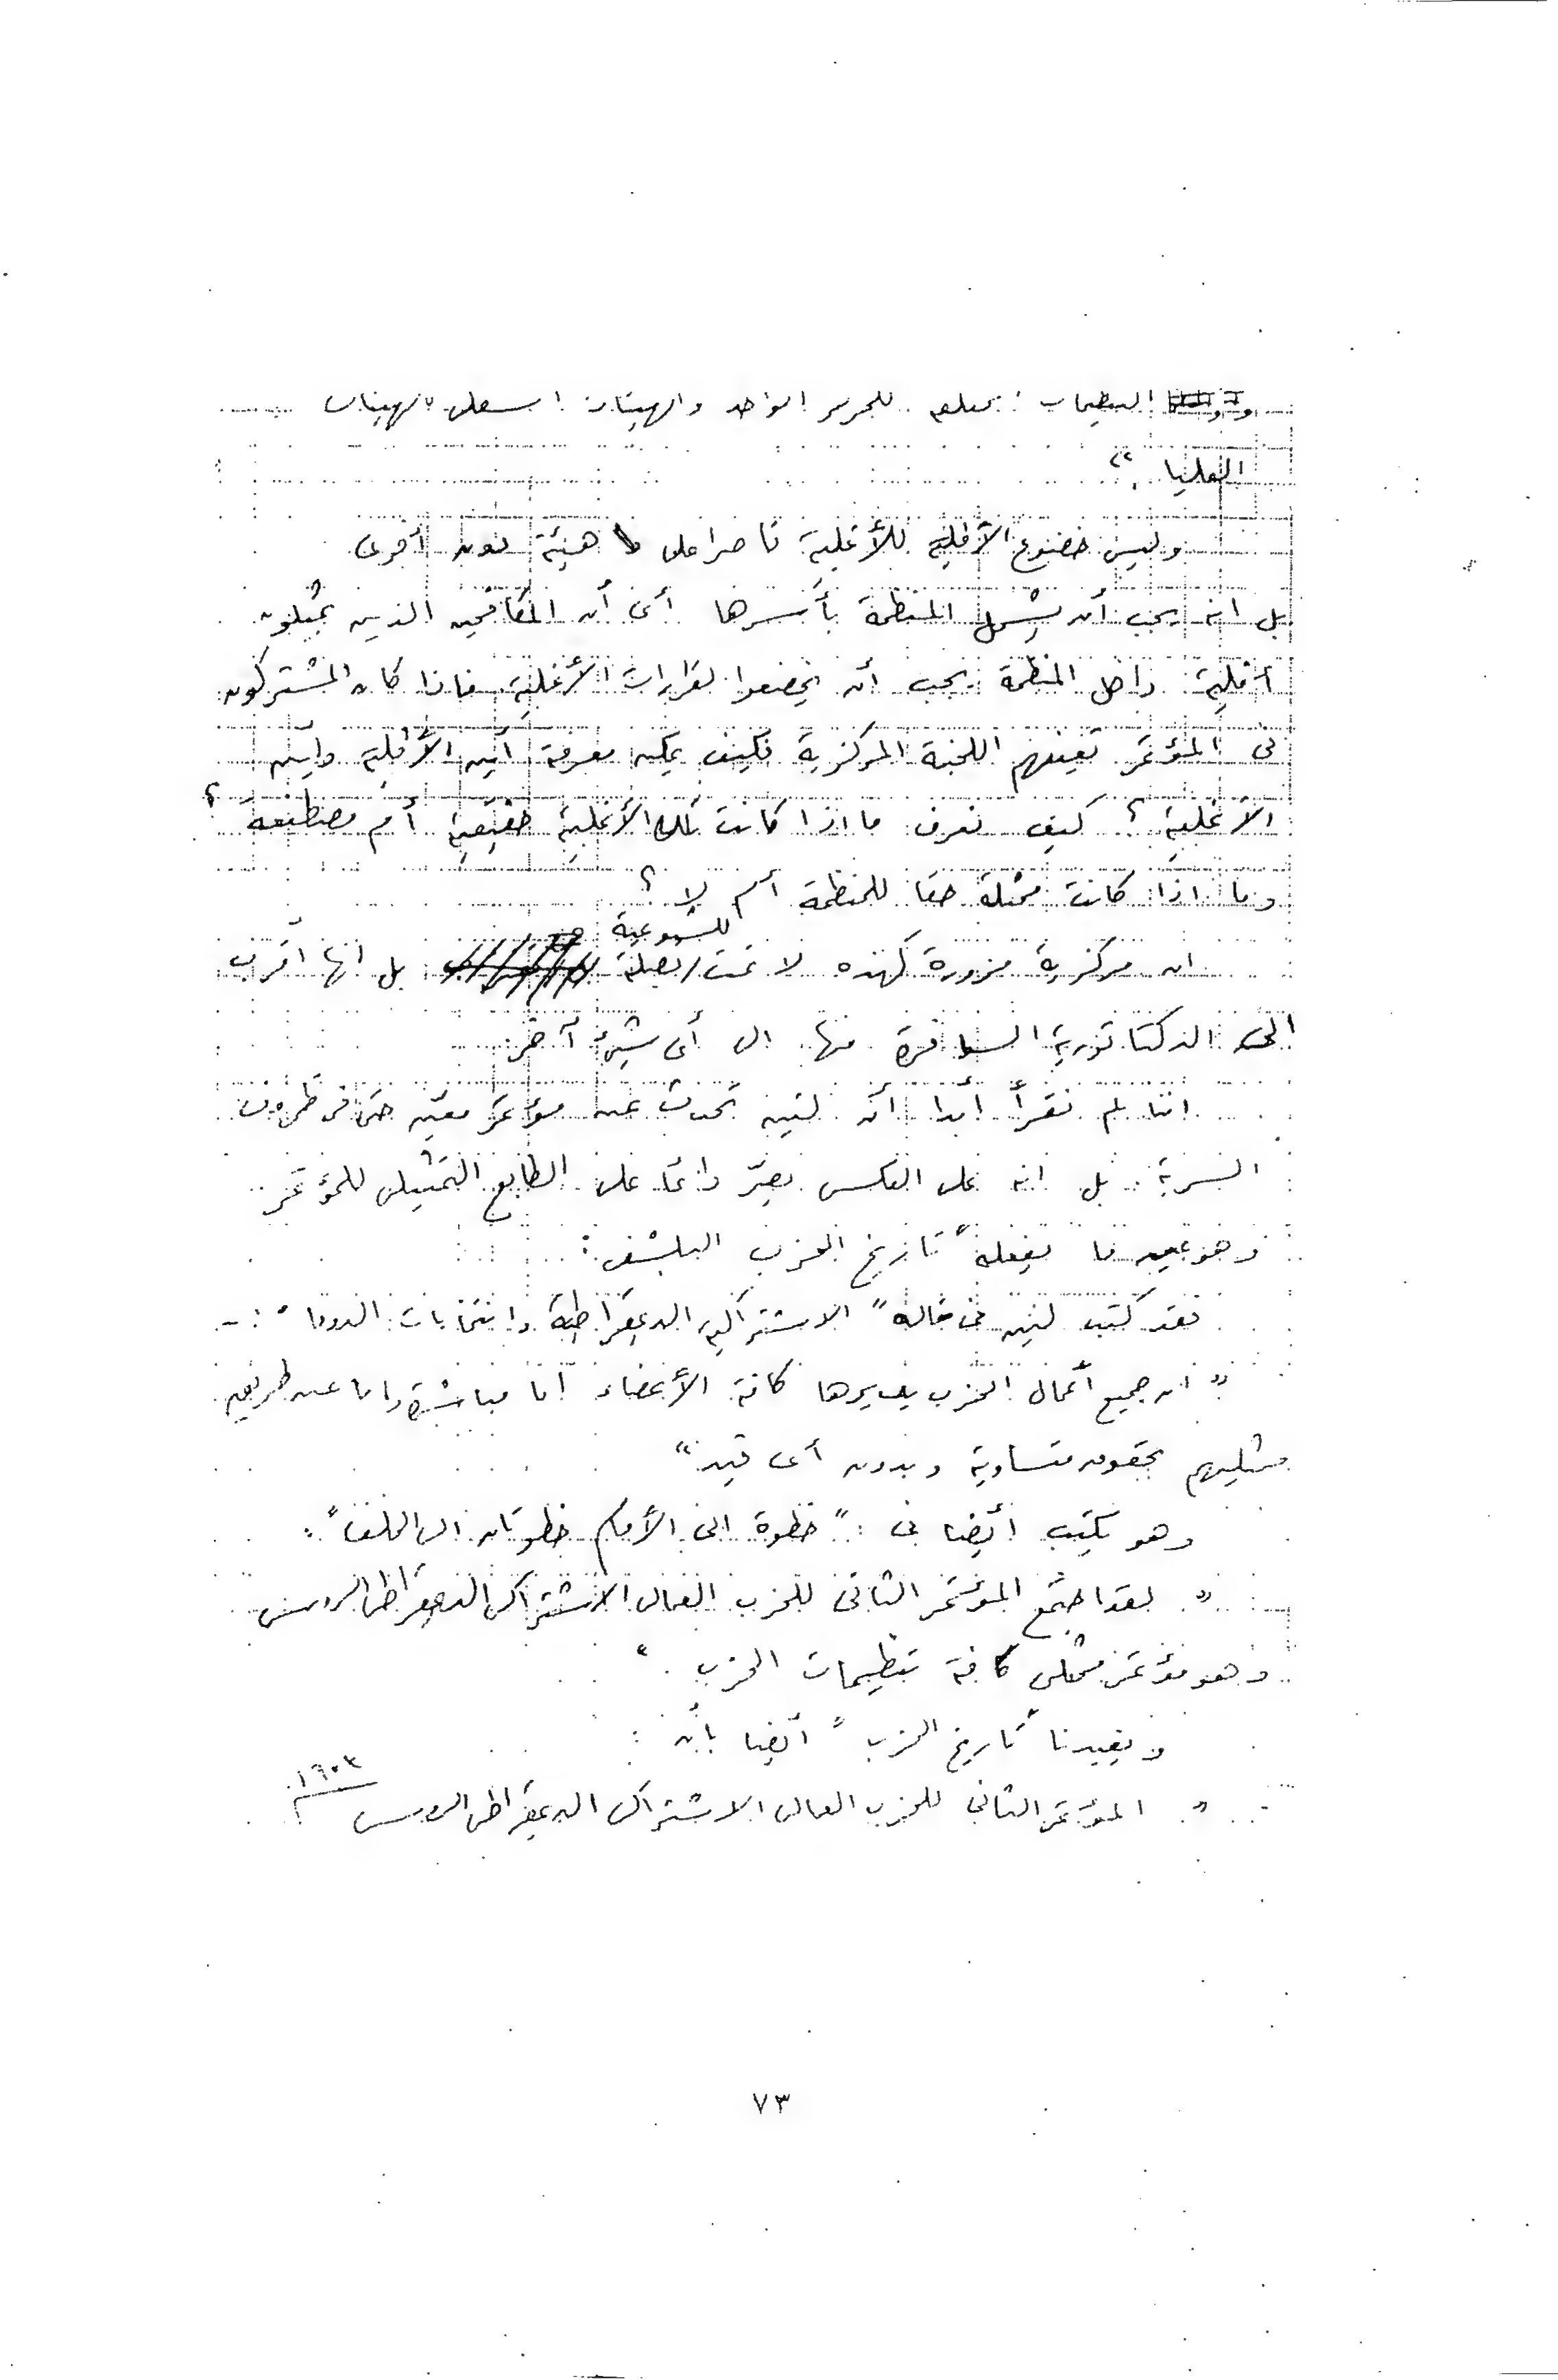 التنظيمات المختلفة للمركز الواحد والهيئات السفلى للهيئات
العليا . "
وليس خضوع الأقلية للأغلبية قاصرا على هيئة دون أخرى
بل انه يجب أن يشمل المنظمة بأسرها أى أن المكافحين الذين يمثلون
أقلية داخل المنظمة يجب أن يخضعوا لقرارات الأغلبية . فاذا كان المشتركون
فى المؤتمر تعينهم اللجنة المركزية فكيف يمكن معرفة أين الأقلية وأين
الأغلبية ؟ كيف نعرف ما اذا كانت تلك الأغلبية حقيقية أم مصطنعة ؟
وما اذا كانت ممثلة حقا للمنظمة أم لا ؟
ان مركزية مزورة كهذه لا تمت بصلة للشيوعية بل انها أقرب
الى الدكتاتورية السافرة منها الى أى شىء آخر .
اننا لم نقرأ أبدا أن لنين تحدث عن مؤتمر معين حتى فى ظروف
السرية . بل انه على العكس يصر دائما على الطابع التمثيلى للمؤتمر .
وهو عين ما يفعله " تاريخ الحزب البلشفى :
فقد كتب لنين فى مقاله " الاشتراكية الديمقراطية وانتخابات الدوما " : -
" ان جميع أعمال الحزب يديرها كافة الأعضاء اما مباشرة واما عن طريق
ممثليهم بحقوق متساوية وبدون أى قيد "
وهو يكتب أيضا فى : " خطوة الى الأمام خطوتان الى الخلف " :
" لقد اجتمع المؤتمر الثانى للحزب العمالى الاشتراكى الديمقراطى الروسى
وهو مؤتمر ممثلى كافة تنظيمات الحزب . "
ويفيدنا " تاريخ الحزب " أيضا بأن :
" المؤتمر الثانى للحزب العمالى الاشتراكى الديمقراطى الروسى ١٩٠٣
٧٣